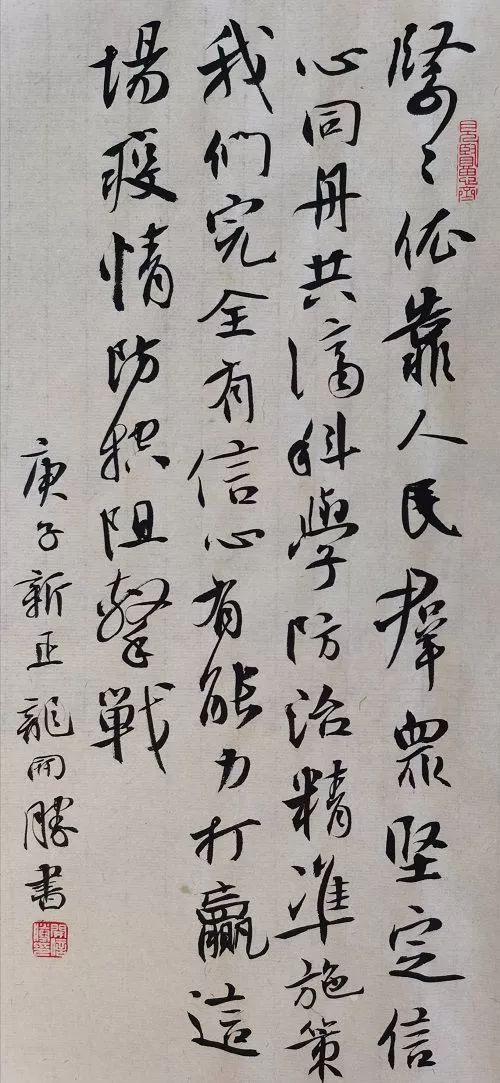 見賢思齊
緊〻依靠人民羣眾堅定信
心同舟共濟科學防治精準施策
我們完全有信心有能力打贏這
場疫情防控阻擊戰
庚子新正龍開勝書